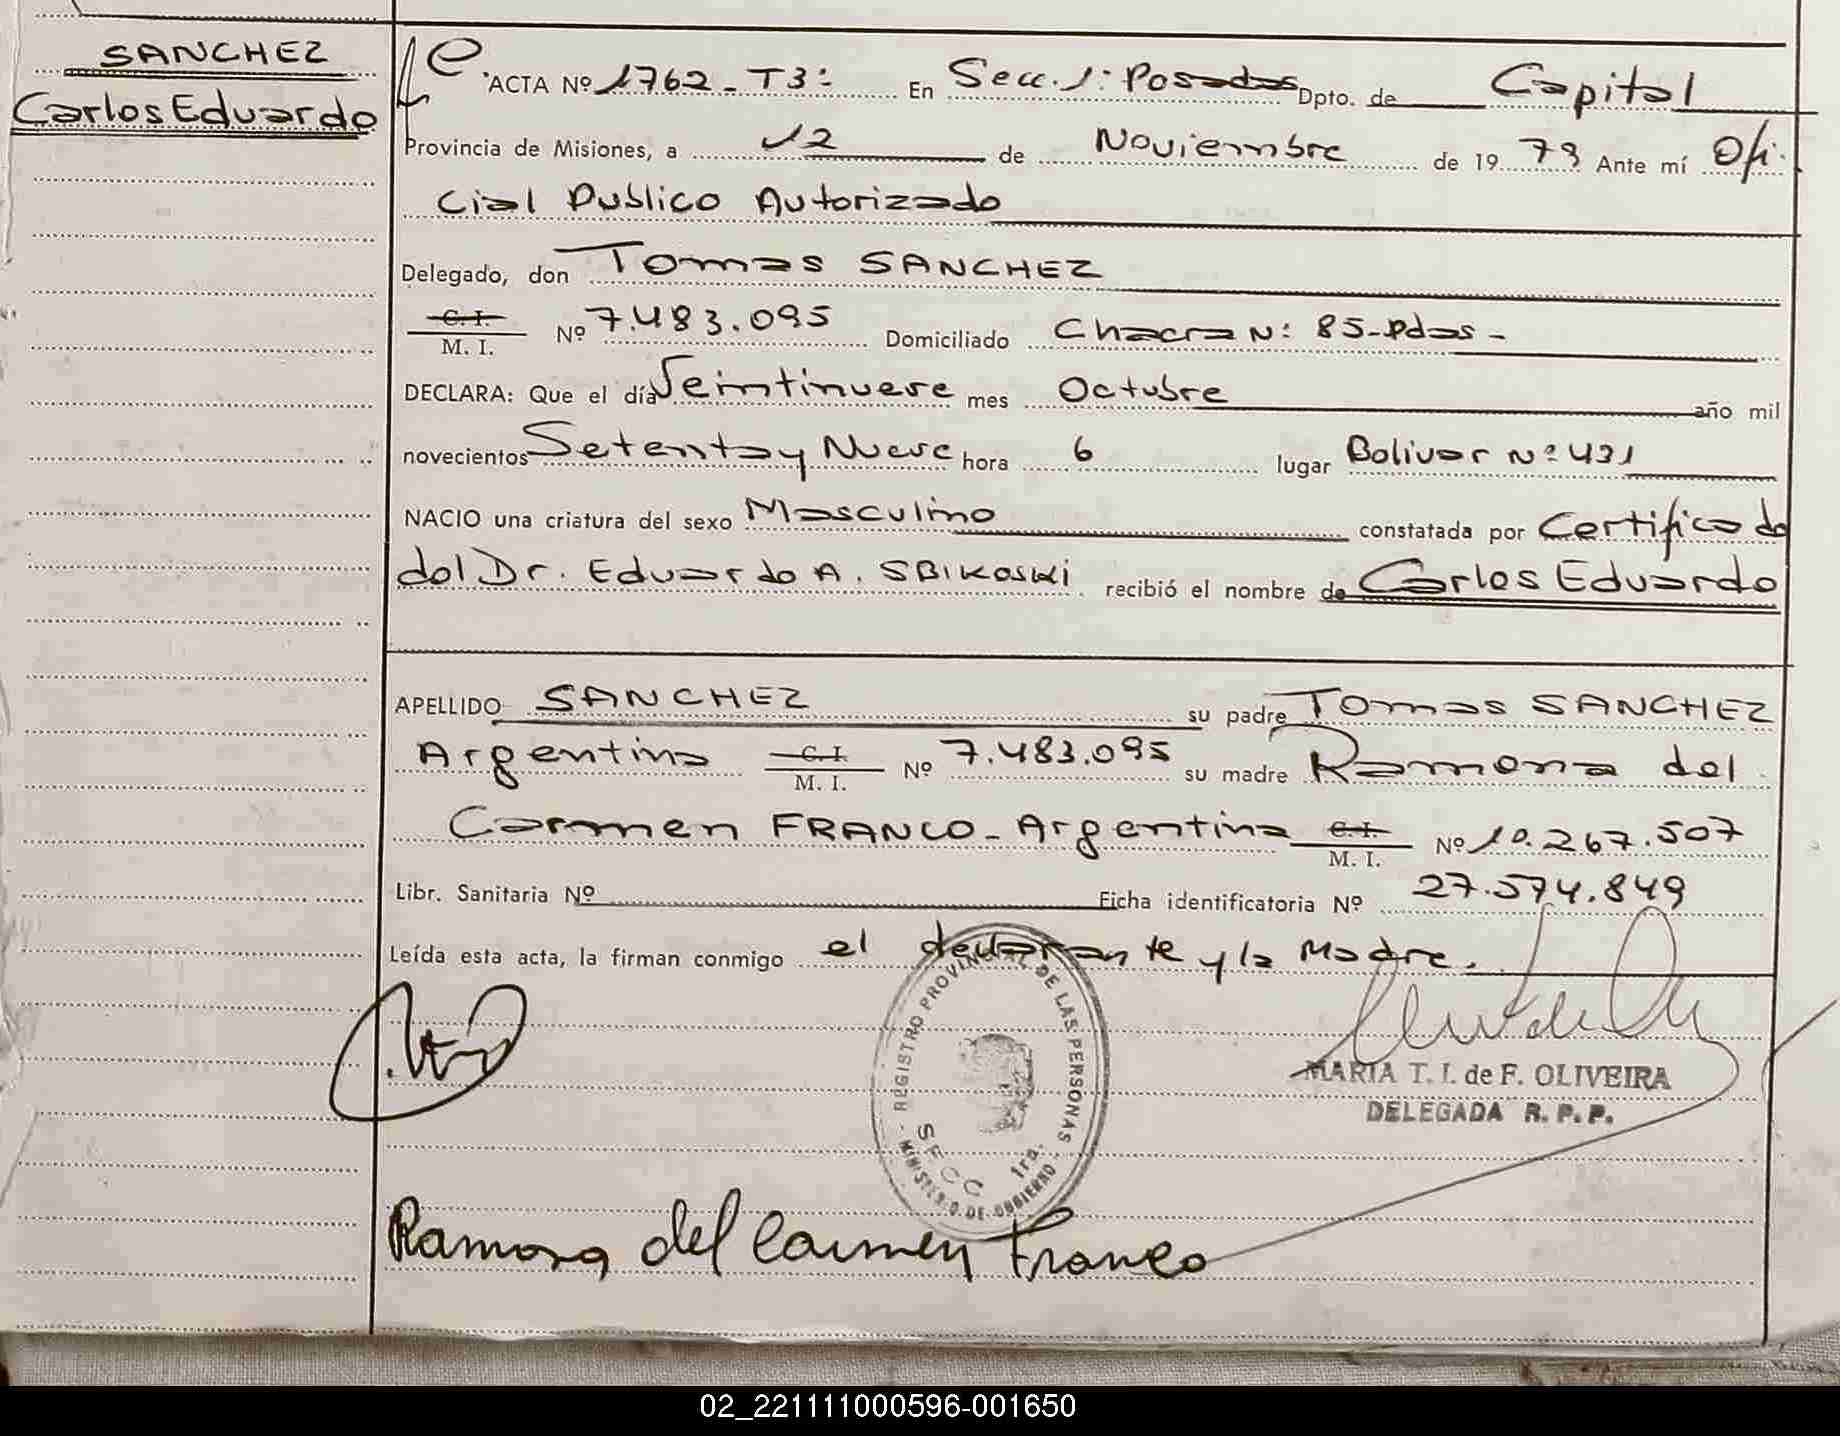 SANCHEZ
Carlos Eduardo
ACTA Nº 1762 - T3: En Secc. 1: Posadas Dpto. de Capital
Provincia de Misiones, a 12 de Noviembre de 1979 Ante mí Ofi-
cial Publico Autorizado
Delegado, don Tomas SANCHEZ
C. I.
M. I. Nº 7.483.095 Domiciliado Chacra Nº 85-Pdas-
DECLARA: Que el día Veintinueve mes Octubre año mil
novecientos Setenta y Nueve hora 6 lugar Bolivar Nº 431
NACIO una criatura del sexo Masculino constatada por Certificado
del Dr. Eduardo A. SBIKOSKI recibió el nombre de Carlos Eduardo
APELLIDO SANCHEZ su padre Tomas SANCHEZ
Argentino C. I.
M. I. Nº 7.483.095 su madre Ramona del
Carmen FRANCO - Argentina C. I.
M. I. Nº 10.267.507
Libr. Sanitaria Nº Ficha identificatoria Nº 27.574.849
Leída esta acta, la firman conmigo el declarante y la Madre.
REGISTRO PROVINCIAL DE LAS PERSONAS
SECC 1ra.
MINISTERIO DE GOBIERNO
MARIA T. I. de F. OLIVEIRA
DELEGADA R. P. P.
Ramona del Carmen Franco
02_221111000596-001650